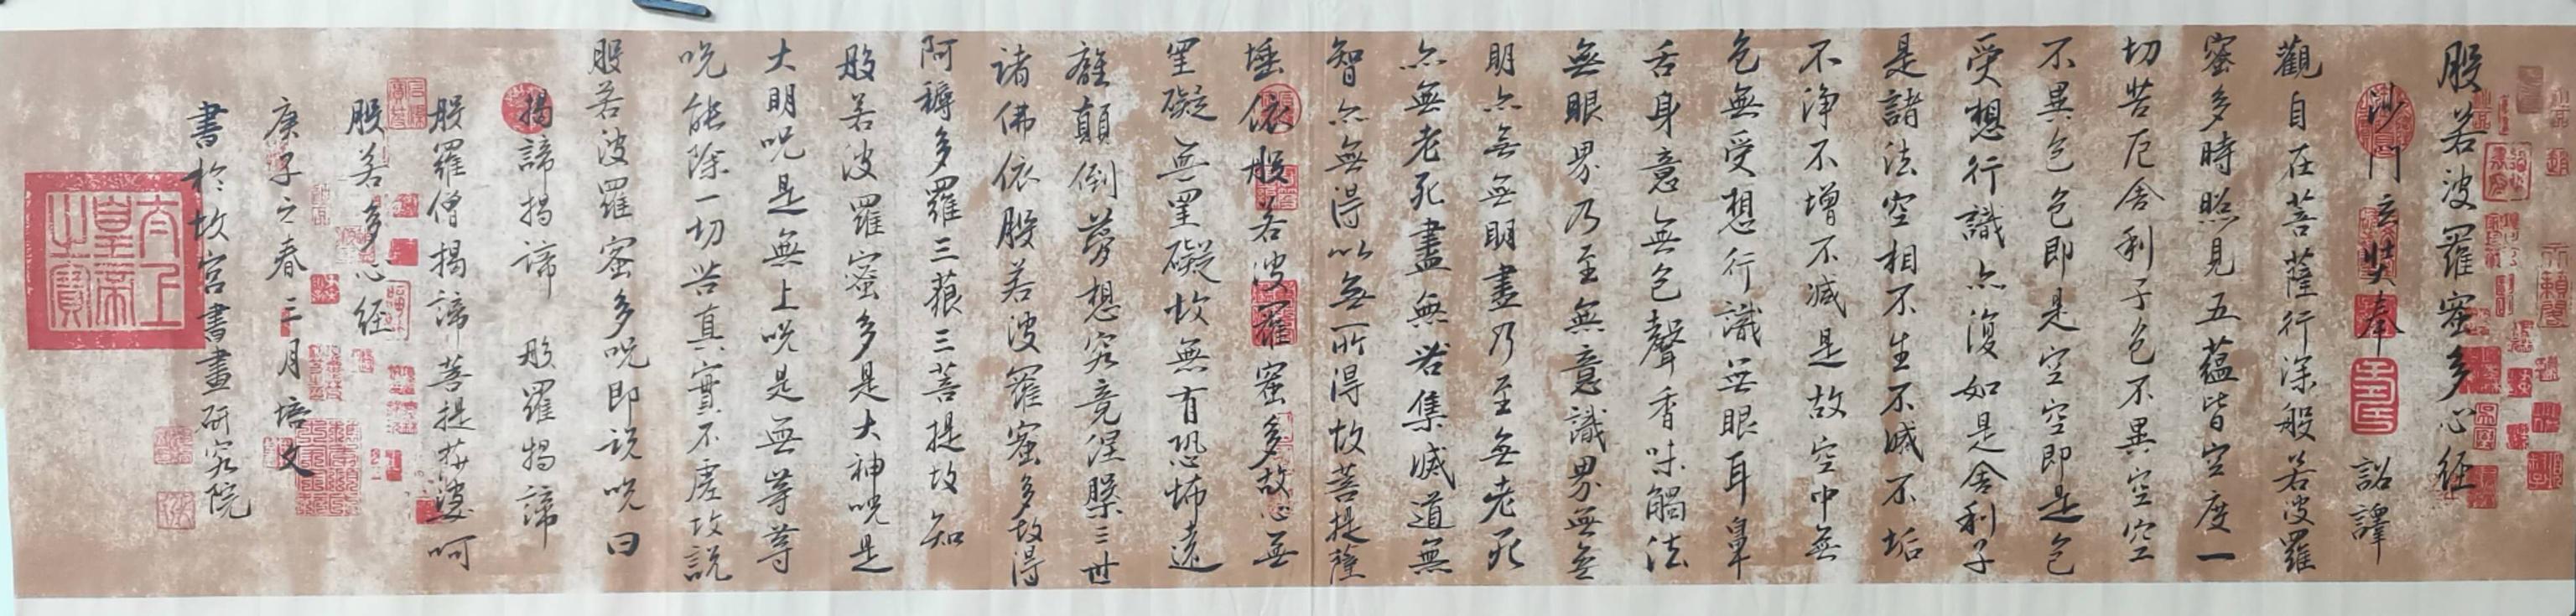 般若波羅蜜多心経
沙門玄奘奉 詔譯
觀自在菩薩行深般若波羅
蜜多時照見五蘊皆空度一
切苦厄舍利子色不異空空
不異色色即是空空即是色
受想行識亦復如是舍利子
是諸法空相不生不滅不垢
不淨不增不減是故空中無
色無受想行識無眼耳鼻
舌身意無色聲香味觸法
無眼界乃至無意識界無無
明亦無無明盡乃至無老死
亦無老死盡無苦集滅道無
智亦無得以無所得故菩提薩
埵依般若波羅蜜多故心無
罣礙無罣礙故無有恐怖遠
離顛倒夢想究竟涅槃三世
諸佛依般若波羅蜜多故得
阿耨多羅三藐三菩提故知
般若波羅蜜多是大神呪是
大明呪是無上呪是無等等
呪能除一切苦真實不虛故說
般若波羅蜜多呪即説呪曰
揭諦揭諦 般羅揭諦
般羅僧揭諦菩提莎婆呵
般若多心経
庚子之春三月培文
書於故宮書畫研究院
太上
皇帝
之寶